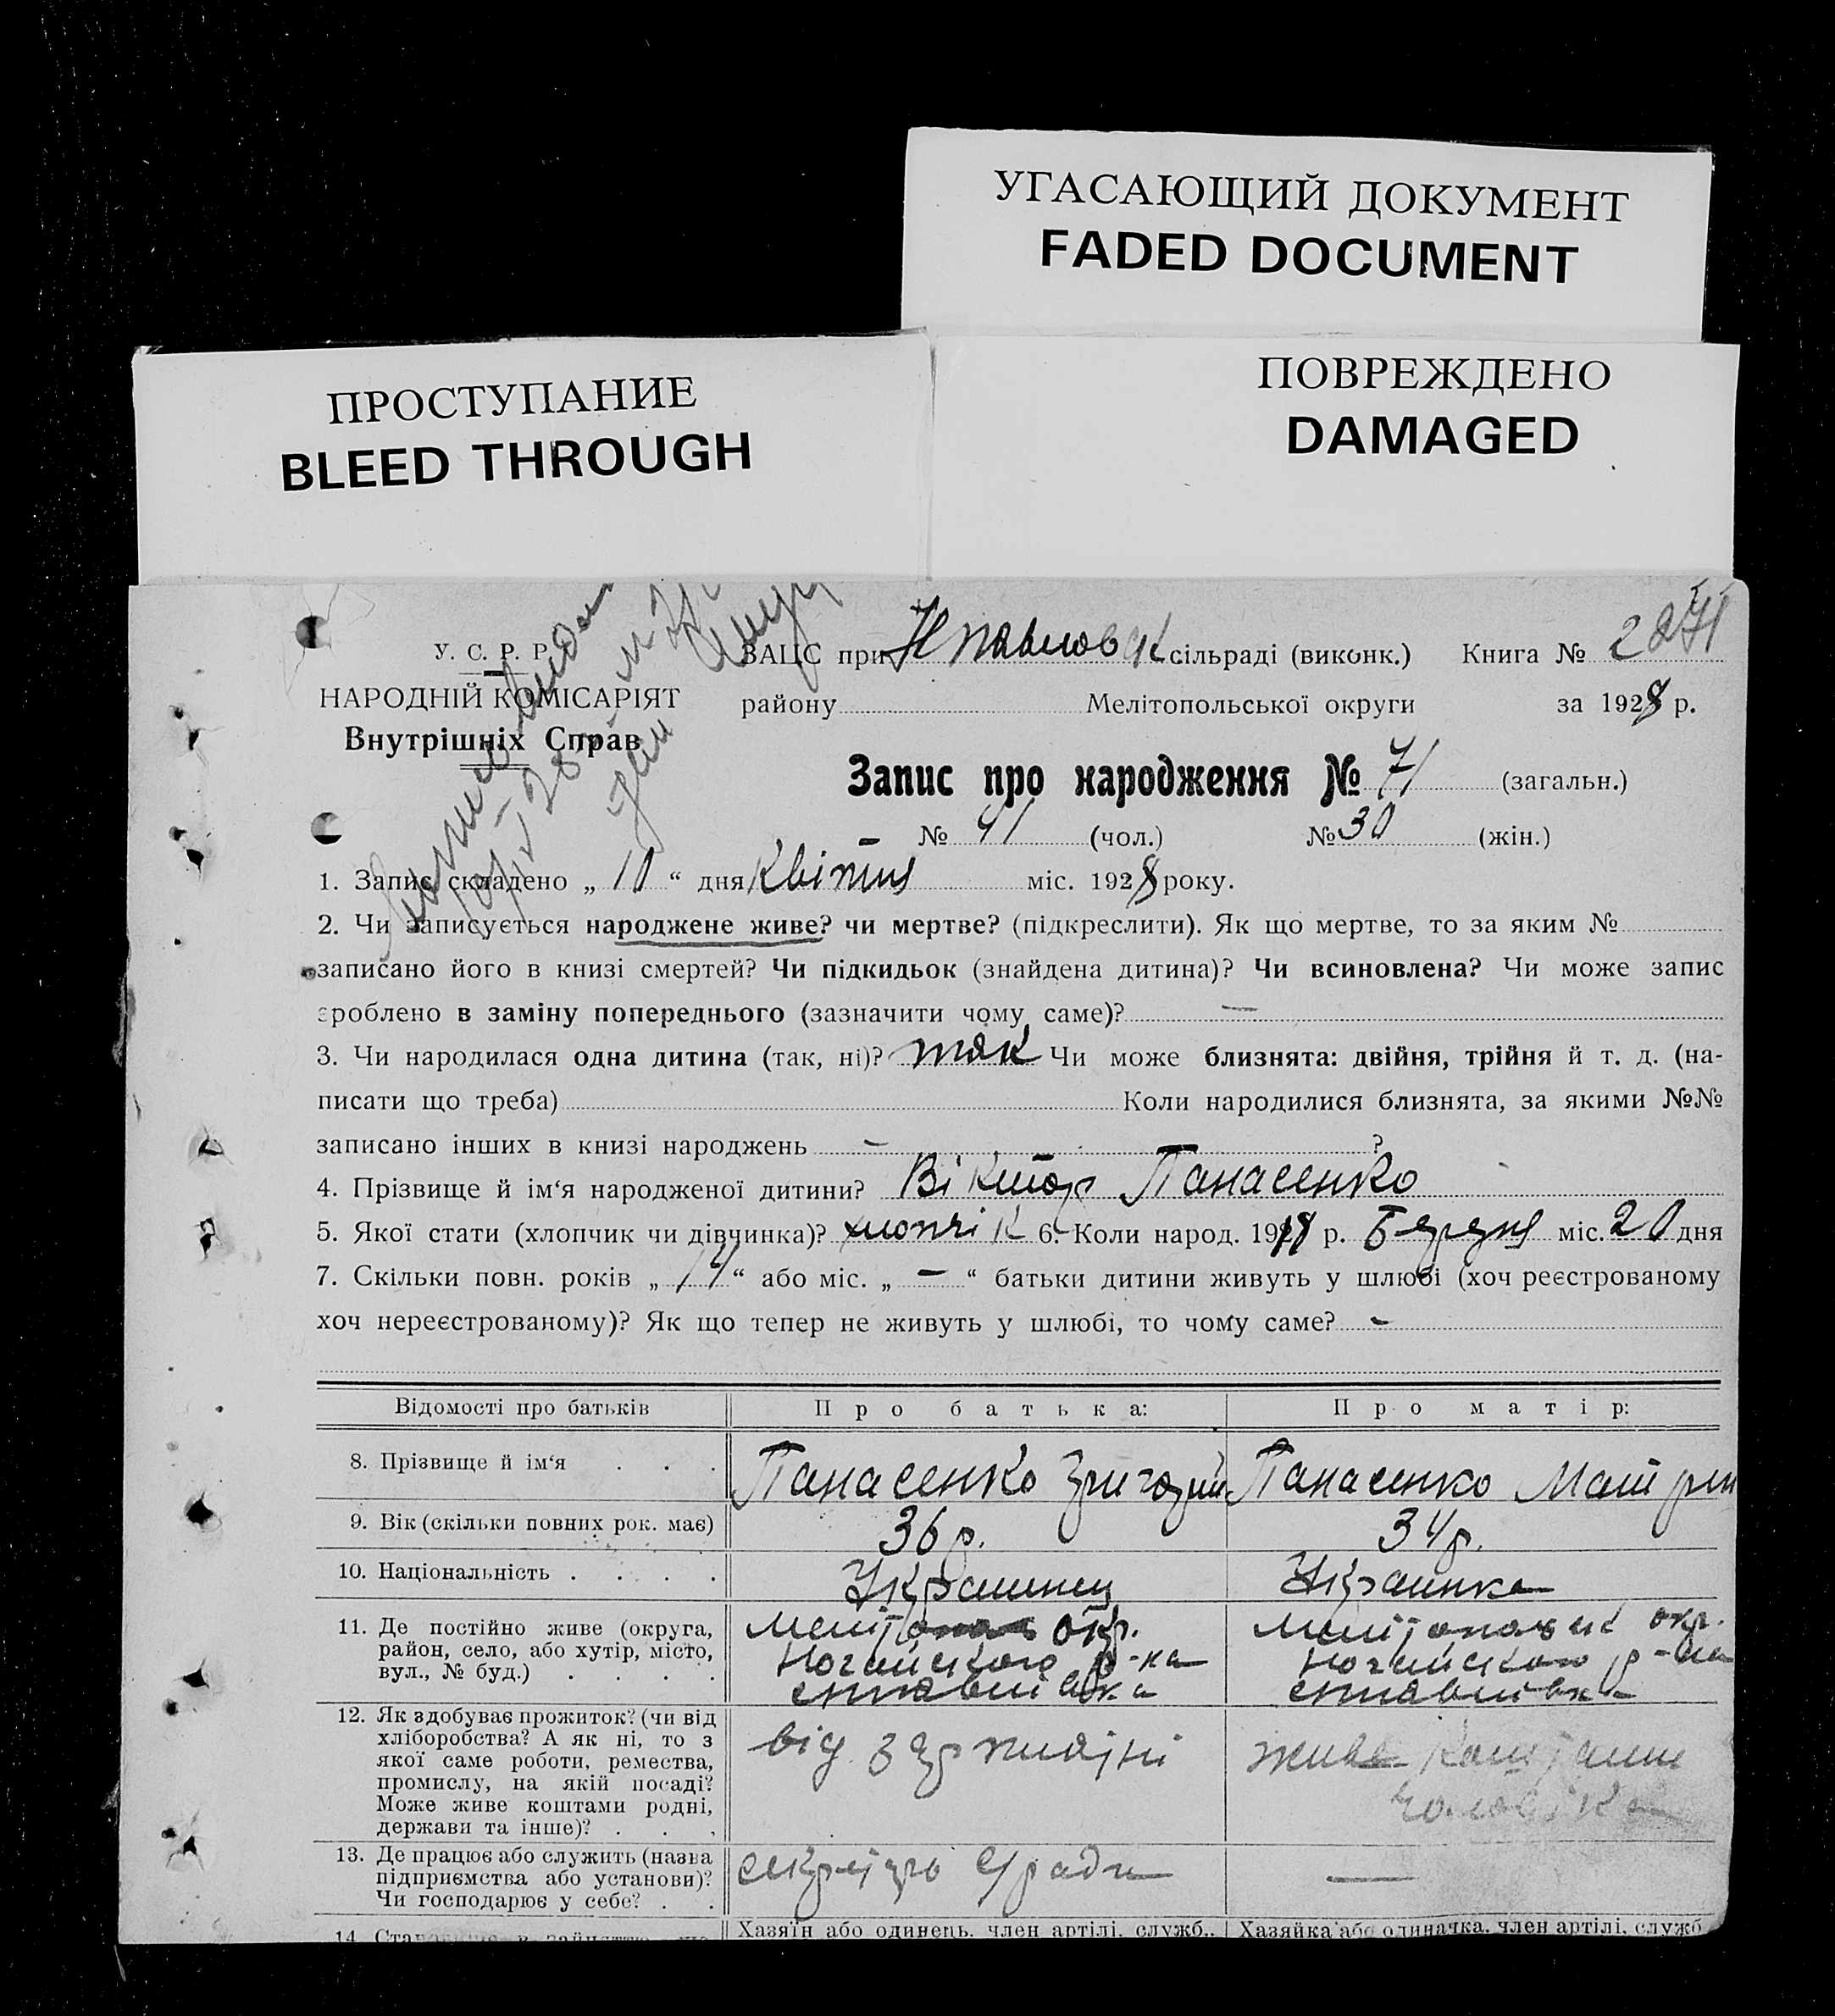 УГАСАЮЩИЙ ДОКУМЕНТ
FADED DOCUMENT
ПРОСТУПАНИЕ
BLEED THROUGH
ПОВРЕЖДЕНО
DAMAGED
У. С. Р. Р.
НАРОДНІЙ КОМІСАРІЯТ
Внутрішніх Справ
ЗАЦС при сільраді (виконк.) Книга №
району Мелітопольської округи за 1928 р.
Запис про народження № 71 (загальн.)
№ 41 (чол.) № 30 (жін.)
1. Запис складено „ 10 “ дня Квітня міс. 1928 року.
2. Чи записується народжене живе? чи мертве? (підкреслити). Як що мертве, то за яким №
записано його в книзі смертей? Чи підкидьок (знайдена дитина)? Чи всиновлена? Чи може запис
зроблено в заміну попереднього (зазначити чому саме)? —
3. Чи народилася одна дитина (так, ні)? так Чи може близнята: двійня, трійня й т. д. (на-
писати що треба) Коли народилися близнята, за якими №№
записано інших в книзі народжень — ?
4. Прізвище й ім‘я народженої дитини? Віктор Панасенко
5. Якої стати (хлопчик чи дівчинка)? хлопчік 6. Коли народ. 19 р. Березня міс. 20 дня
7. Скільки повн. років „ 14 “ або міс. „ — “ батьки дитини живуть у шлюбі (хоч реєстрованому
хоч нереєстрованому)? Як що тепер не живуть у шлюбі, то чому саме? -
Відомості про батьків Про батька: Про матір:
8. Прізвище й ім‘я . . . Панасенко Григорий Панасенко
9. Вік (скільки повних рок. має) 36 р. 34 р.
10. Національність . . . . Украинец Украинка
11. Де постійно живе (округа,
район, село, або хутір, місто,
вул., № буд.) . . . .
окр.
Ногайского р-на
окр.
Ногайского р-на
12. Як здобуває прожиток? (чи від
хліборобства? А як ні, то з
якої саме роботи, ремества,
промислу, на якій посаді?
Може живе коштами родні,
держави та інше)? . . .
від
живе
чоловіка
13. Де працює або служить (назва
підприємства або установи)?
Чи господарює у себе? . .
с/ради
—
14.
Хазяїн або одинець, член артілі, служб..
Хазяйка або одиначка, член артілі, служб